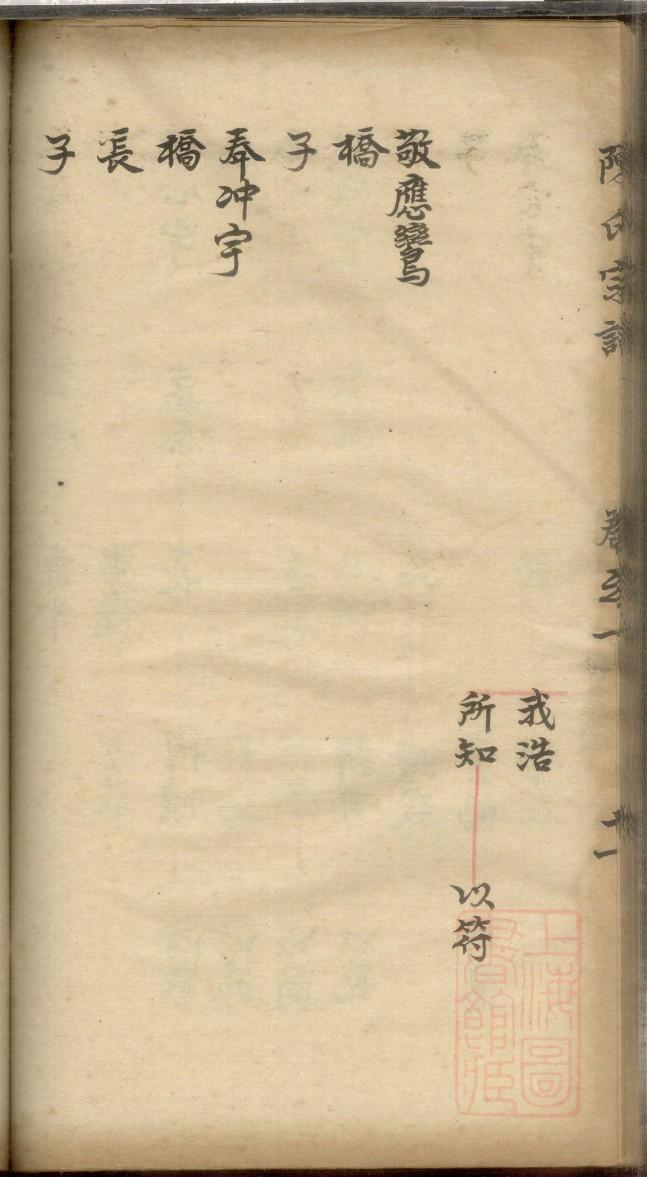 陳氏宗譜 卷之一 十一
我浩
所知 以符
敬應鸞
橋
子
奉冲宇
橋
長
子
上海圖
書館藏